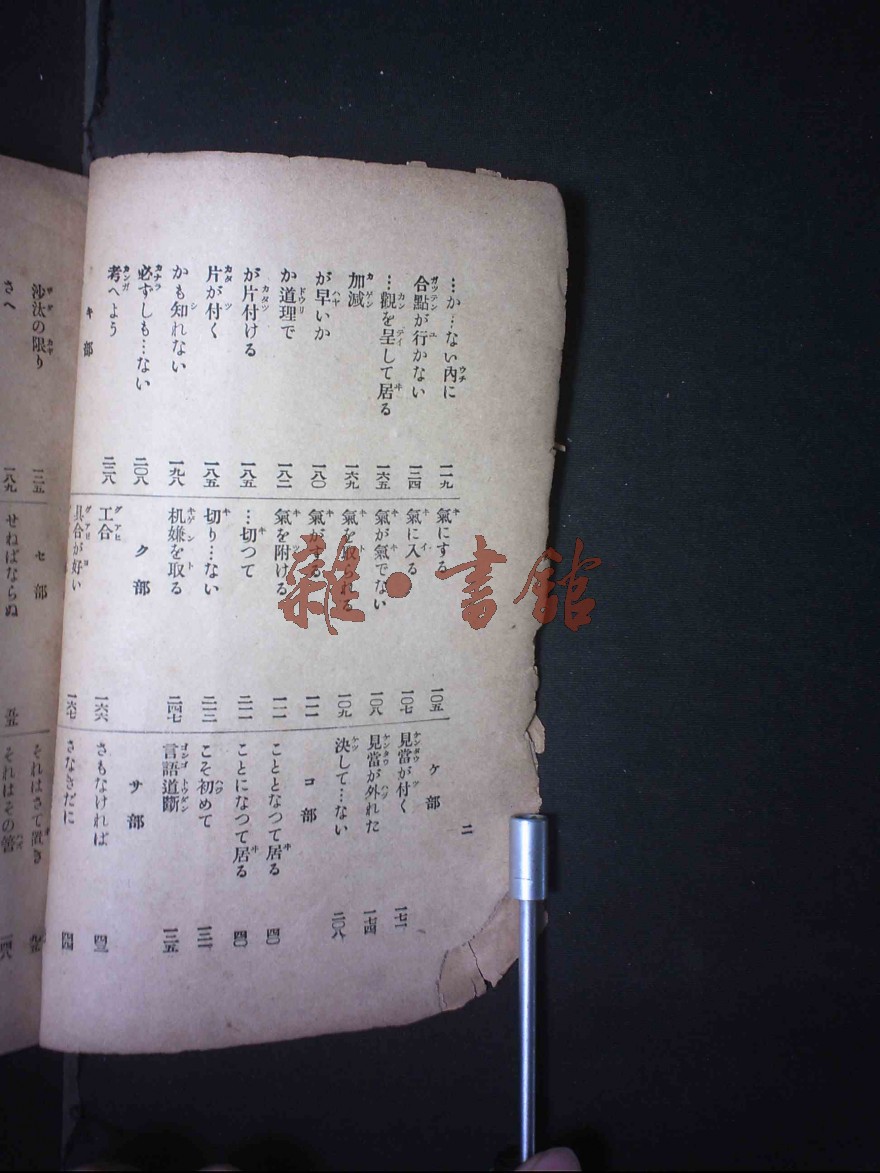 二
…か…ない內に 一一九
合點が行かない 一二四
…觀を呈して居る 一六五
加減 一六九
が早いか 一八〇
か道理で 一八二
が片付ける 一八五
片が付く 一八五
かも知れない 一九八
必ずしも…ない 二〇八
考へよう 二三八
キ部
氣にする 一〇五
氣に入る 一〇七
氣が氣でない 一〇八
氣を取られる 一〇九
氣がする 一一一
氣を附ける 一一一
…切つて 二一一
切り…ない 二一二
机嫌を取る 二四七
ク部
工合 一六六
具合が好い 一六七
ケ部
見當が付く 一七一
見當が外れた 一七四
決して…ない 二〇八
コ部
こととなつて居る 四〇
ことになつて居る 四〇
こそ初めて 一三一
言語道斷 一三五
サ部
さもなければ
さなきだに 四四
沙汰の限り 一三五
さへ 一八九
セ部
せねばならぬ 五五
それはさて置き
それはその筈 一四八
雜·書館